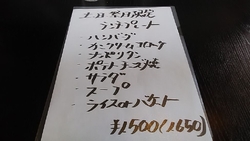 土日祭日限定
ランチプレート
・ハンバーグ
・カニクリームコロッケ
・ナポリタン
・ポテトチーズ焼
・サラダ
・スープ
・ライスorバケット
¥1500(1650)